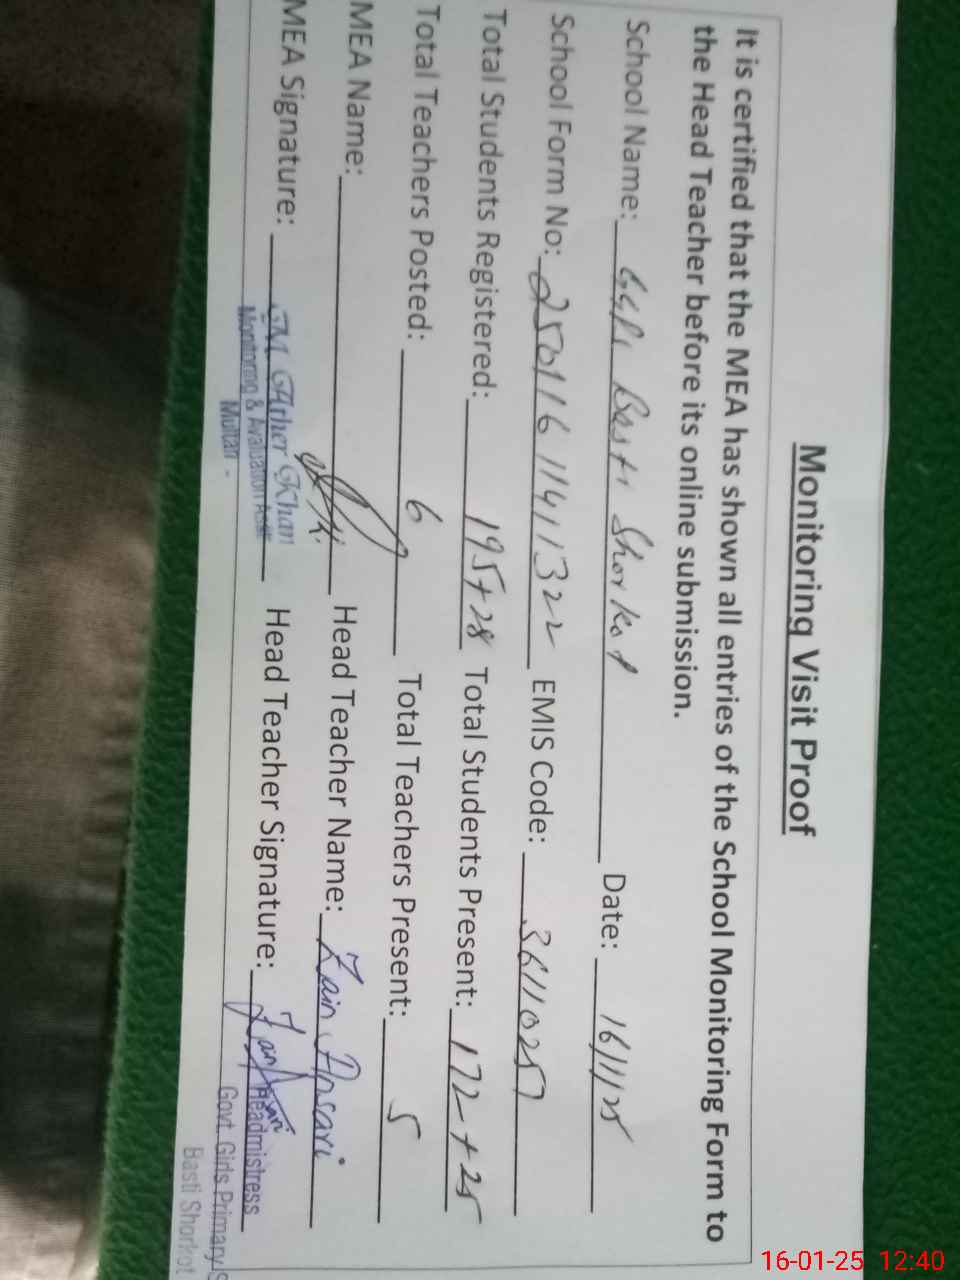 Monitoring Visit Proof
It is certified that the MEA has shown all entries of the School Monitoring Form to
the Head Teacher before its online submission.
School Name: GGPS Basti Shorkot Date: 16/1/25
School Form No: 2501161141322 EMIS Code: 36110257
Total Students Registered: 195+28 Total Students Present: 172+25
Total Teachers Posted: 6 Total Teachers Present: 5
MEA Name: Head Teacher Name: Zain Ansari
MEA Signature: Khan Head Teacher Signature: Zain
Monitoring & Avaluation Headmistress
Multan - Govt. Girls Primary S
Basti Shorkot
16-01-25 12:40